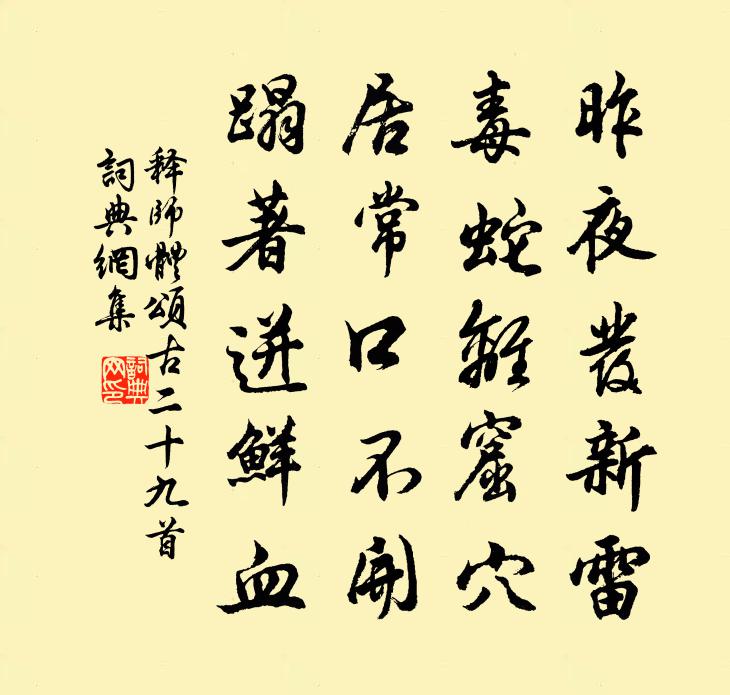 昨夜發新雷
毒蛇離窟穴
居常口不開
蹋著迸鮮血
释師體頌古二十九首
詞典網集
詞典網印